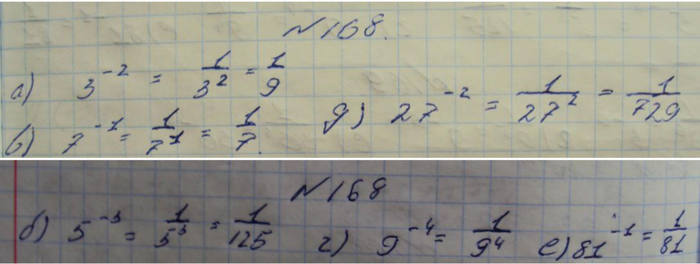 №168.
а) 3^{-2} = \frac{1}{3^2} = \frac{1}{9}
в) 7^{-1} = \frac{1}{7^1} = \frac{1}{7}. д) 27^{-2} = \frac{1}{27^2} = \frac{1}{729}
№168
б) 5^{-3} = \frac{1}{5^3} = \frac{1}{125} г) 9^{-4} = \frac{1}{9^4} е) 81^{-1} = \frac{1}{81}